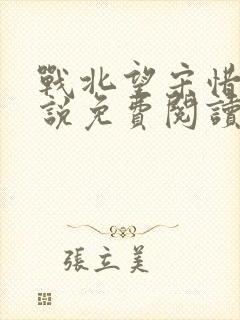 戰北望宋惜
說免費閱讀
張立美